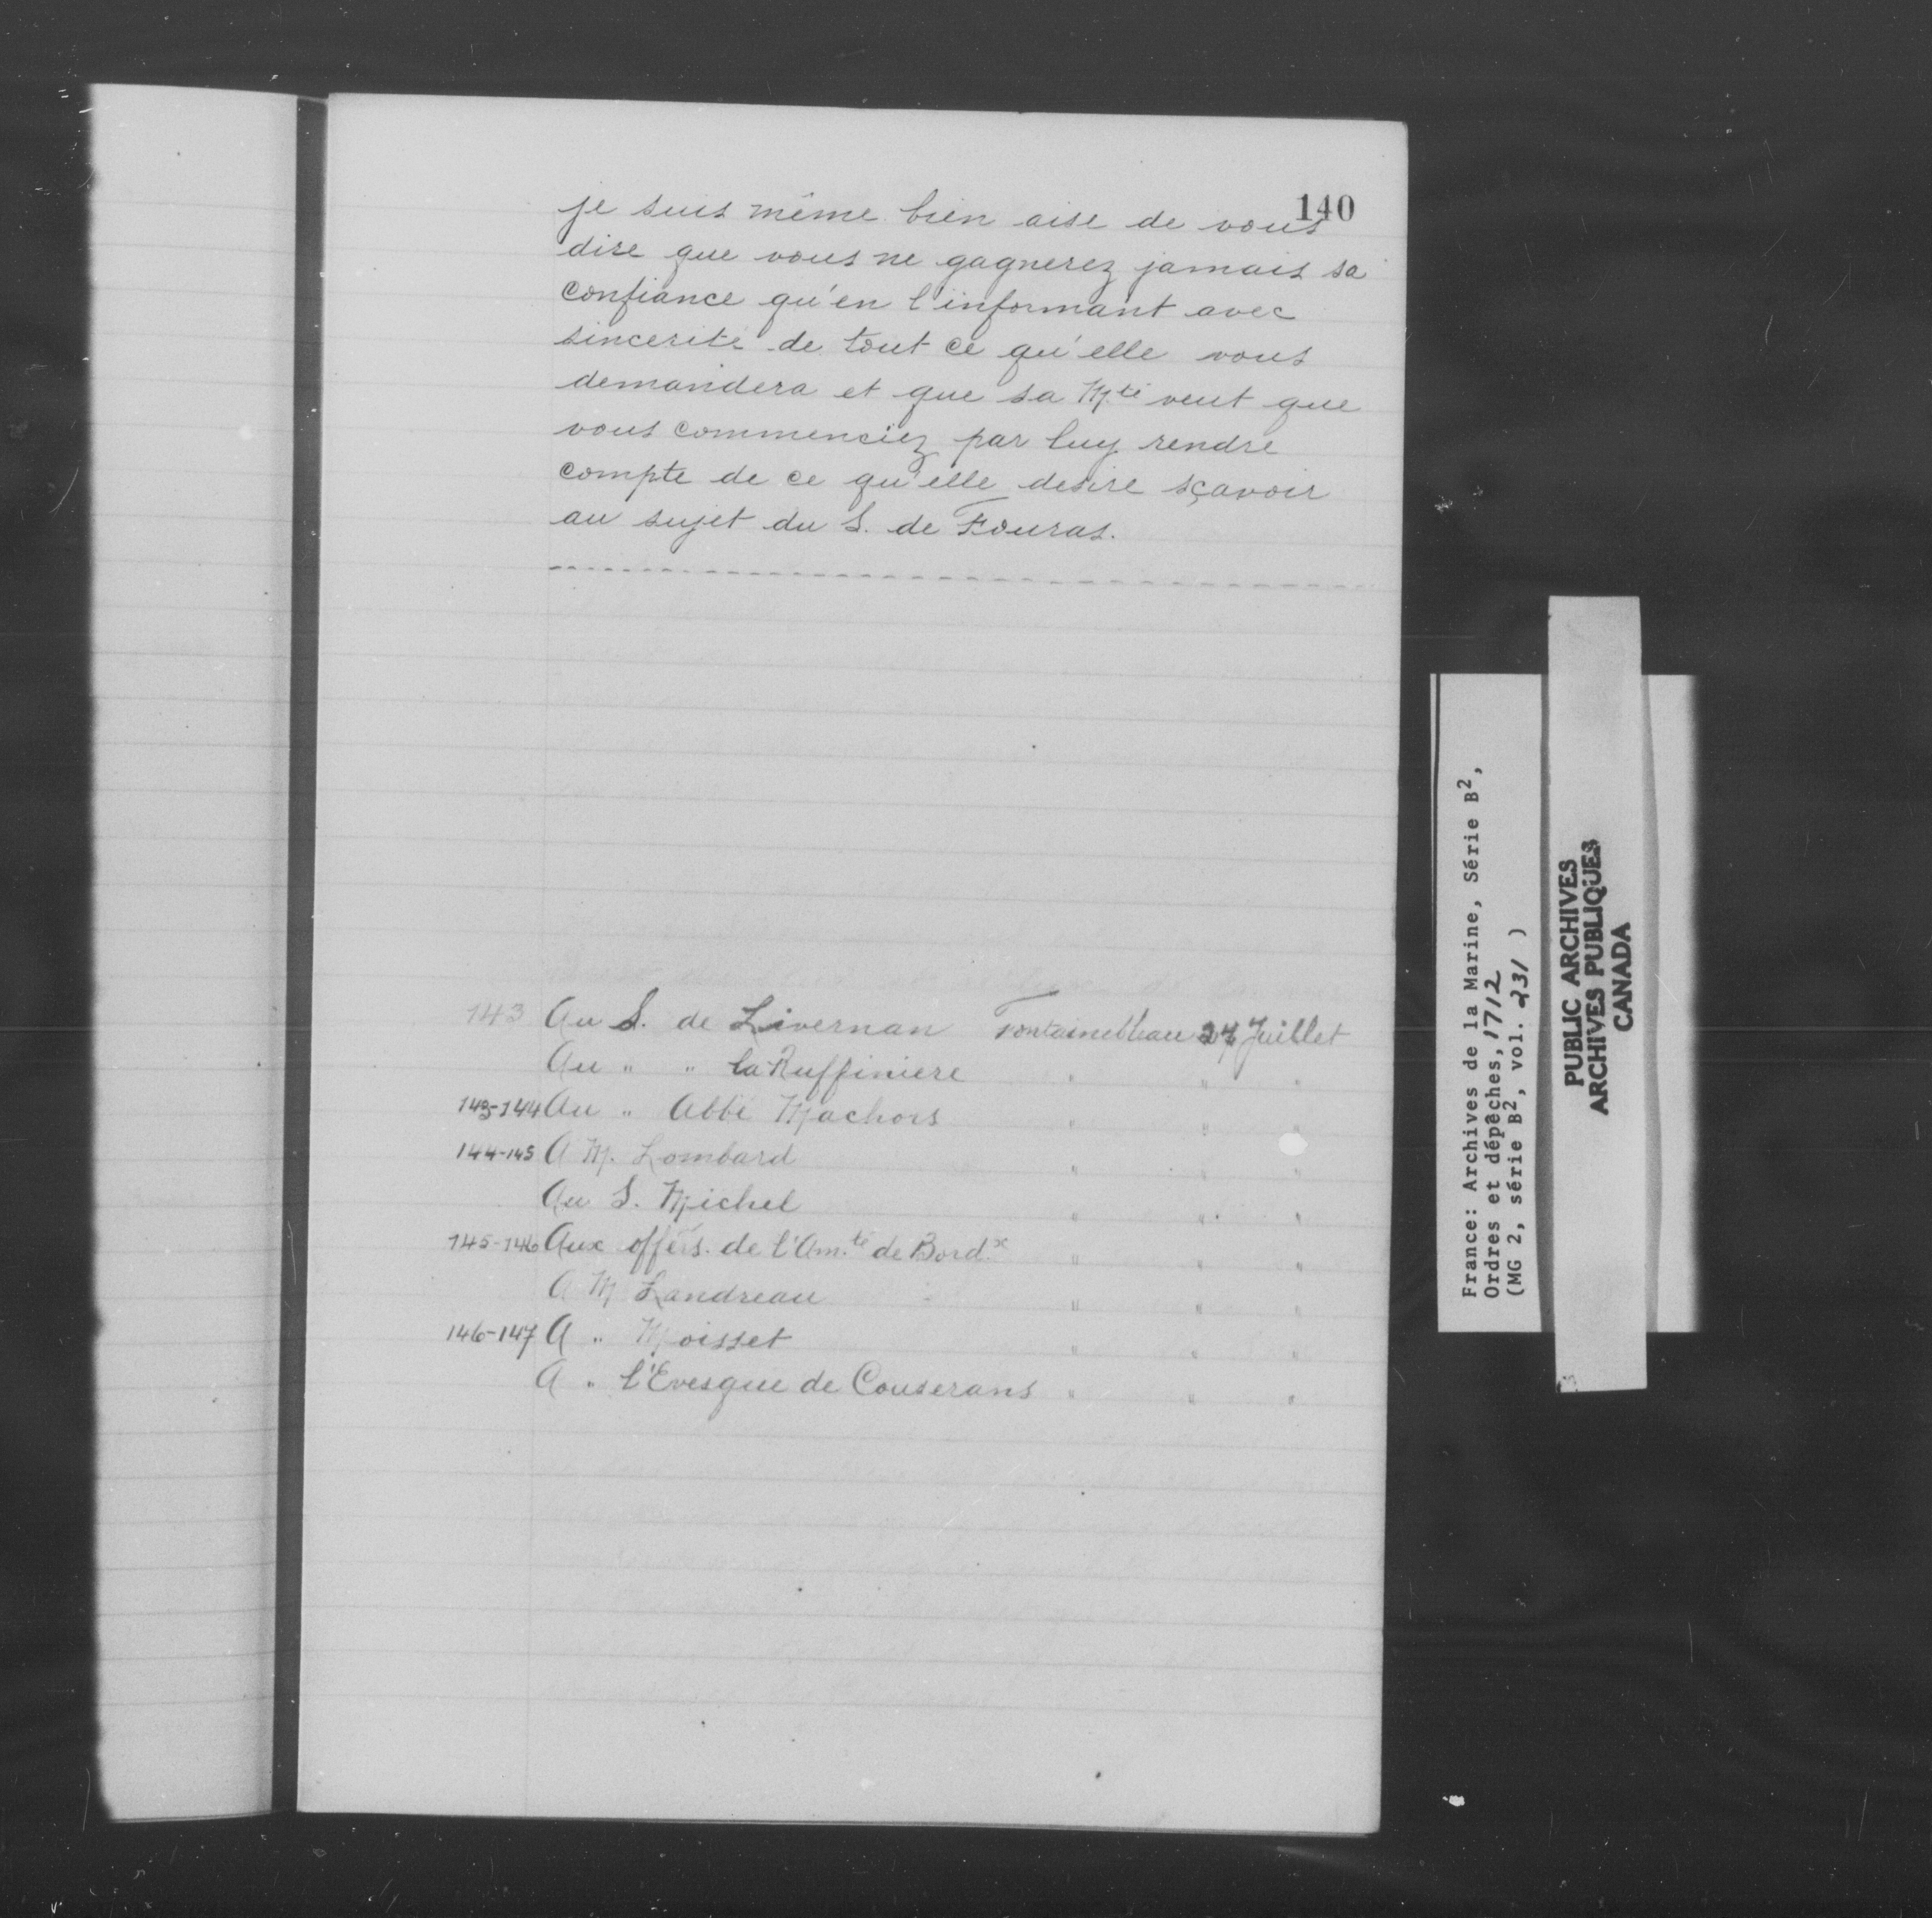 140
je suis même bien aise de vous
dire que vous ne gagnerez jamais sa
confiance qu'en l'informant avec
sincerité de tout ce qu'elle vous
demandera et que sa Mté veut que
vous commenciez par luy rendre
compte de ce qu'elle desire sçavoir
au sujet du S. de Fouras.
143 Au S. de Livernan Fontainebleau 27 Juillet
Au " " la Ruffiniere " " "
143-144 Au " Abbé Machors " " "
144-145 A M. Lombard " " "
Au S. Michel " " "
145-146 Aux offers. de l'Am.té de Bord.x " " "
A M Landreau " " "
146-147 A " Moisset " " "
A " l'Evesque de Couserans " " "
France: Archives de la Marine, Série B2,
Ordres et dépêches, 1712
(MG 2, série B2, vol. 231 )
PUBLIC ARCHIVES
ARCHIVES PUBLIQUES
CANADA